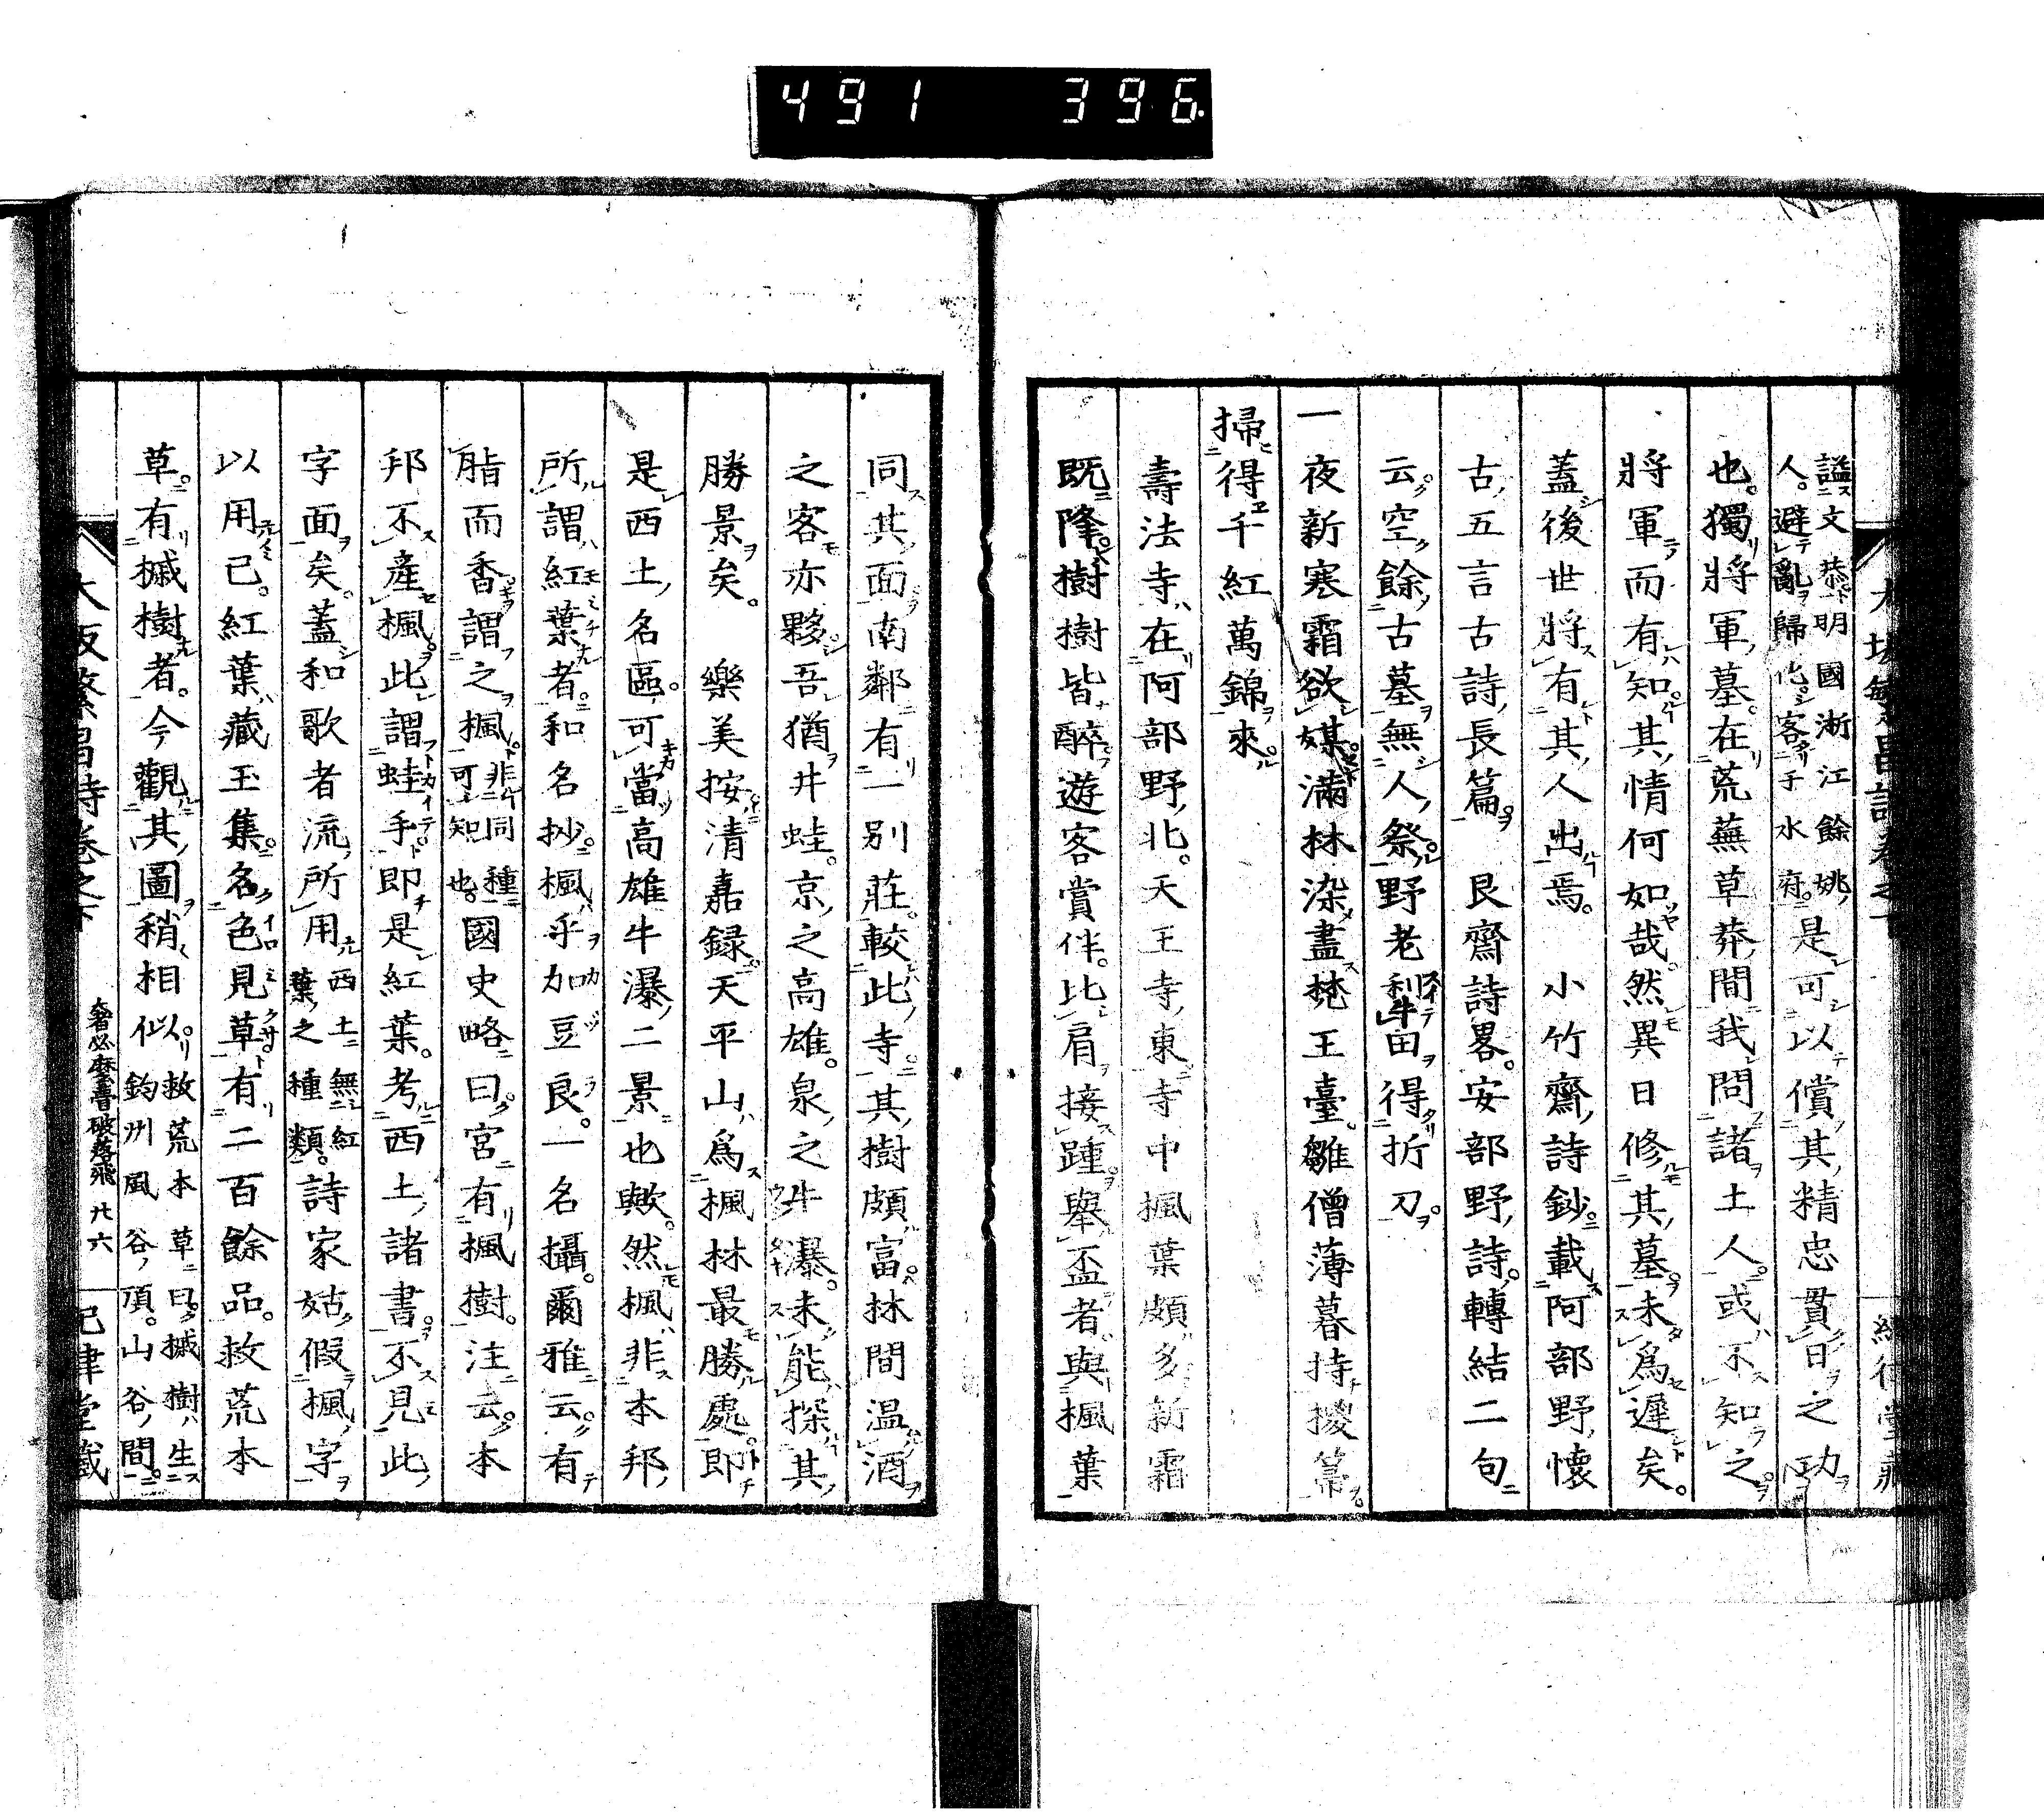 491 396
諡文恭明國淅江餘姚
人。避亂歸化。客于水府。是可以償其精忠貫日之功
也。獨將軍墓在荒蕪草莽間我問諸土人。或不知之
將軍而有知其情何如哉。然異日修其墓。未為遲矣。
蓋後世將有其人出焉。 小竹齋詩鈔載阿部野懷
古五言古詩長篇 艮齋詩畧。安部野詩轉結二句
云。空餘古墓無人祭。野老犁田得折刀。
一夜新寒霜欲媒滿林染盡梵王臺。雛僧薄暮持擾箒
掃得千紅萬錦來
壽法寺在阿部野北。天王寺東寺中楓葉頗多新霜
既降樹樹皆醉遊客賞伴。比肩接踵。舉盃者與楓葉
同其面南鄰有一別莊。較此寺其樹頗富。林間温酒
之客亦夥。吾猶井蛙。京之高雄。泉之牛瀑。未能探其
勝景矣。 樂美按清嘉録天平山為楓林最勝處。即
是西土名區。可當高雄牛瀑二景也歟。然楓非本邦
所謂紅葉者。和名抄。楓乎加豆良。一名攝。爾雅云。有
脂而香謂之楓非同種可知也。國史略曰。宮有楓樹。注云。本
邦不產楓。此謂蛙手。即是紅葉。考西土諸書。不見此
字面矣。蓋和歌者流所用西土無紅葉之種類。詩家姑假楓字
以用已。紅葉藏玉集。名色見草有二百餘品。救荒本
草。有槭樹者。今觀其圖稍相似救荒本草曰。槭樹生鈞州風谷頂。山谷間。
大坂繁昌詩卷之下 廿六